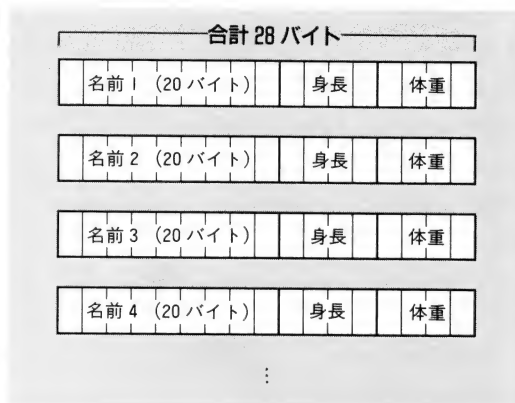 合計28バイト
名前1 (20バイト) 身長 体重
名前2 (20バイト) 身長 体重
名前3 (20バイト) 身長 体重
名前4 (20バイト) 身長 体重
⋮